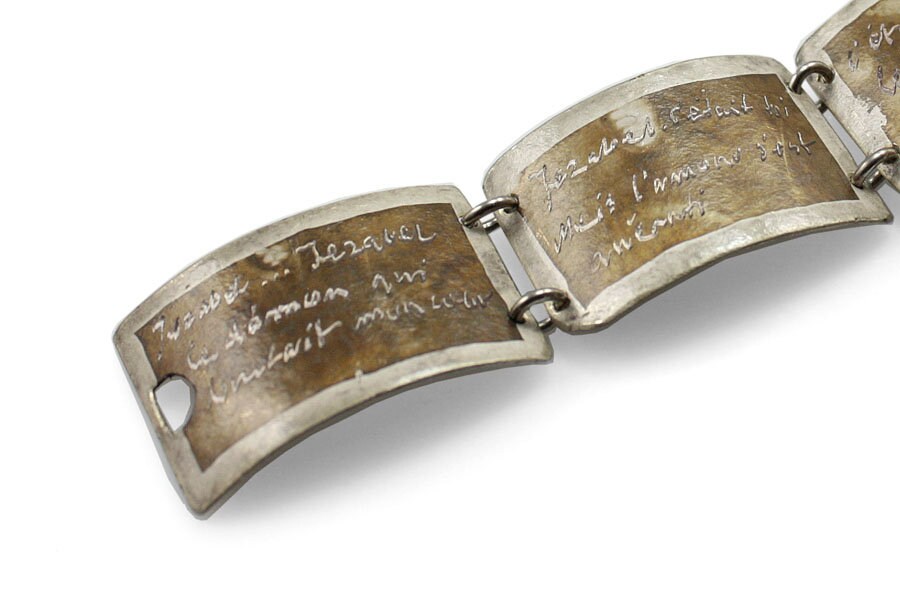 Jezabel ... Jezabel
ce démon qui
brulait mon coeur
Jezabel.. c'était toi
Mais l'amour s'est
anéanti